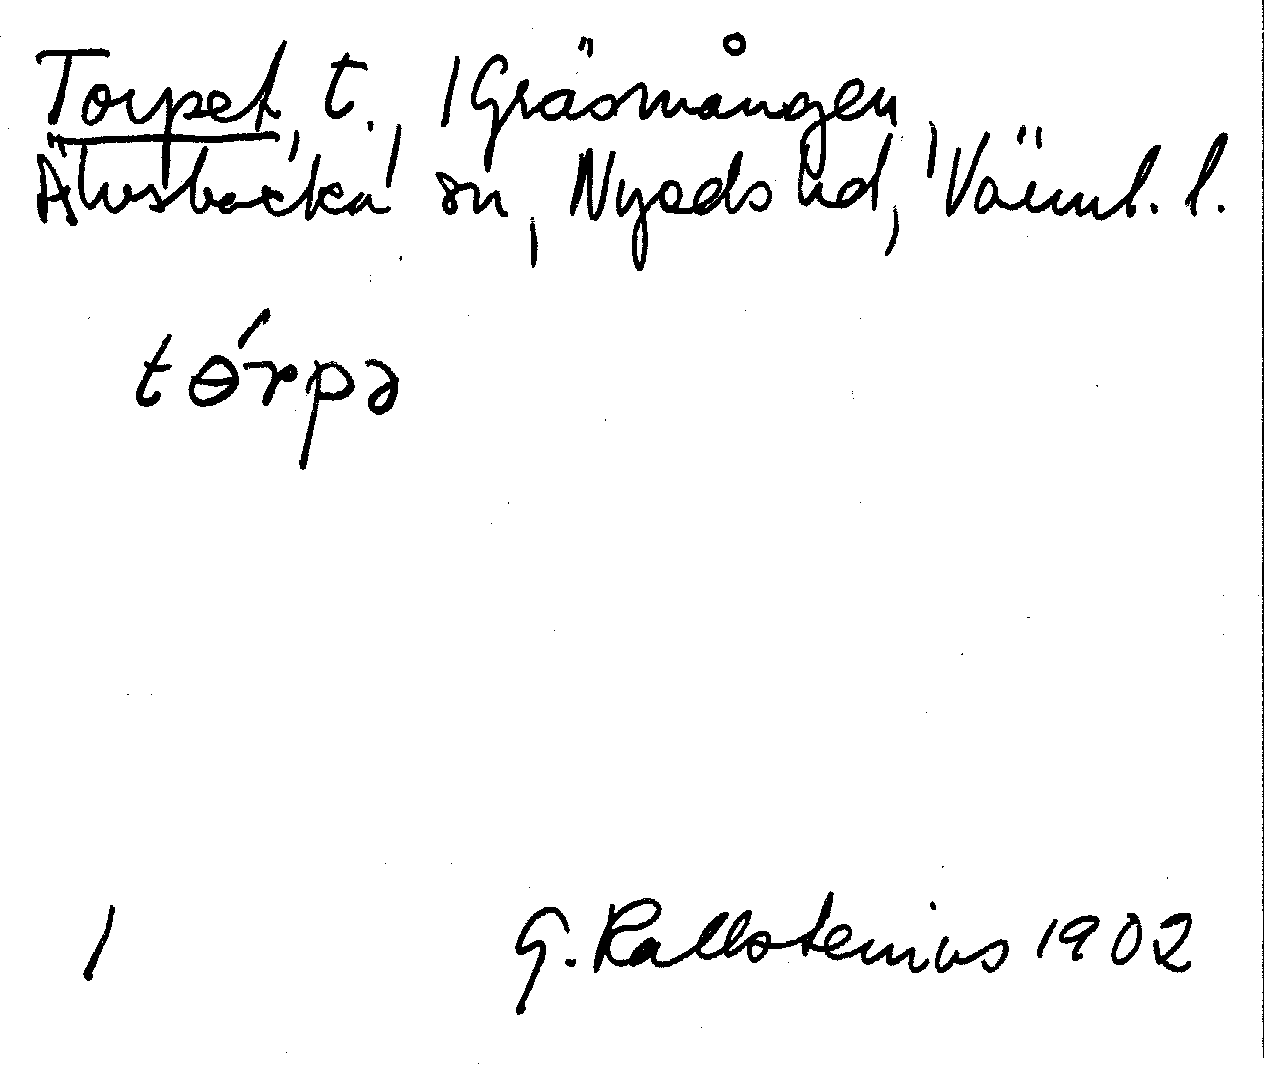 Torpet, t., /Gräsmången,
Älvsbacka sn, Nyeds hd, Värml. l.
tɵ́rpə
1 G. Kallstenius 1902